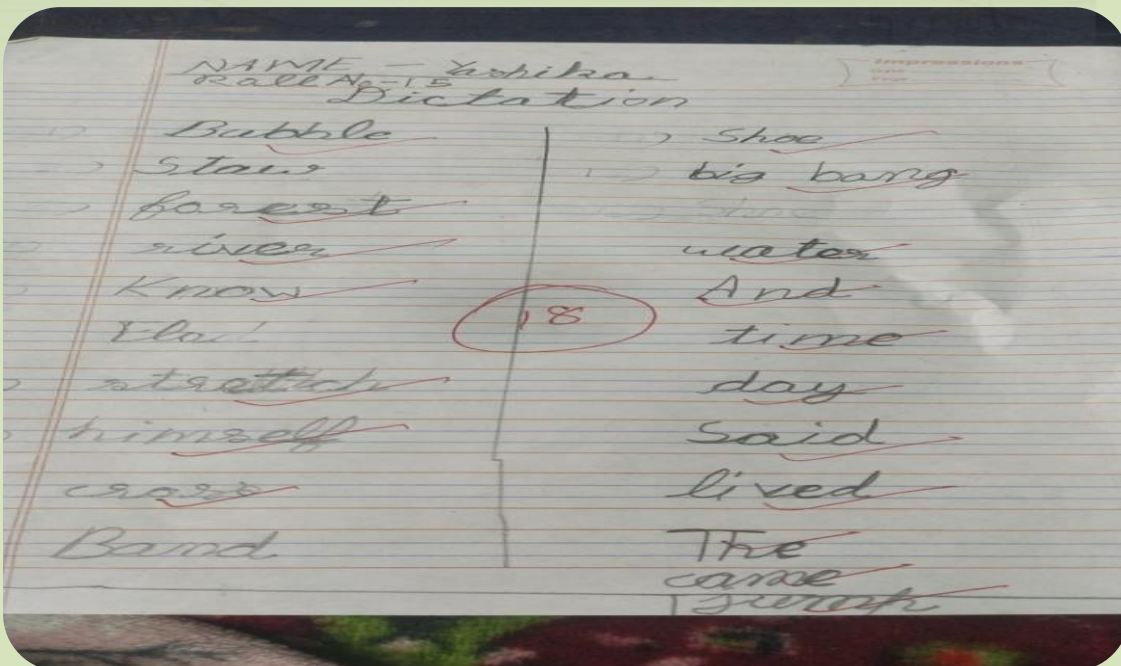 Impressions
NAME - Yashika
Roll No-15
Dictation
Bubble
Staw
forest
river
Know
stretch
himself
cross
Band
Shoe
big bang
Shoe
water
And
time
day
Said
lived
The
came
Jump
18